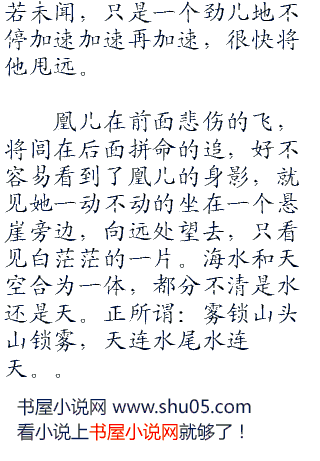 若未闻，只是一个劲儿地不
停加速加速再加速，很快将
他甩远。
凰儿在前面悲伤的飞，
将闾在后面拼命的追，好不
容易看到了凰儿的身影，就
见她一动不动的坐在一个悬
崖旁边，向远处望去，只看
见白茫茫的一片。海水和天
空合为一体，都分不清是水
还是天。正所谓：雾锁山头
山锁雾，天连水尾水连
天。。
书屋小说网 www.shu05.com
看小说上书屋小说网就够了！